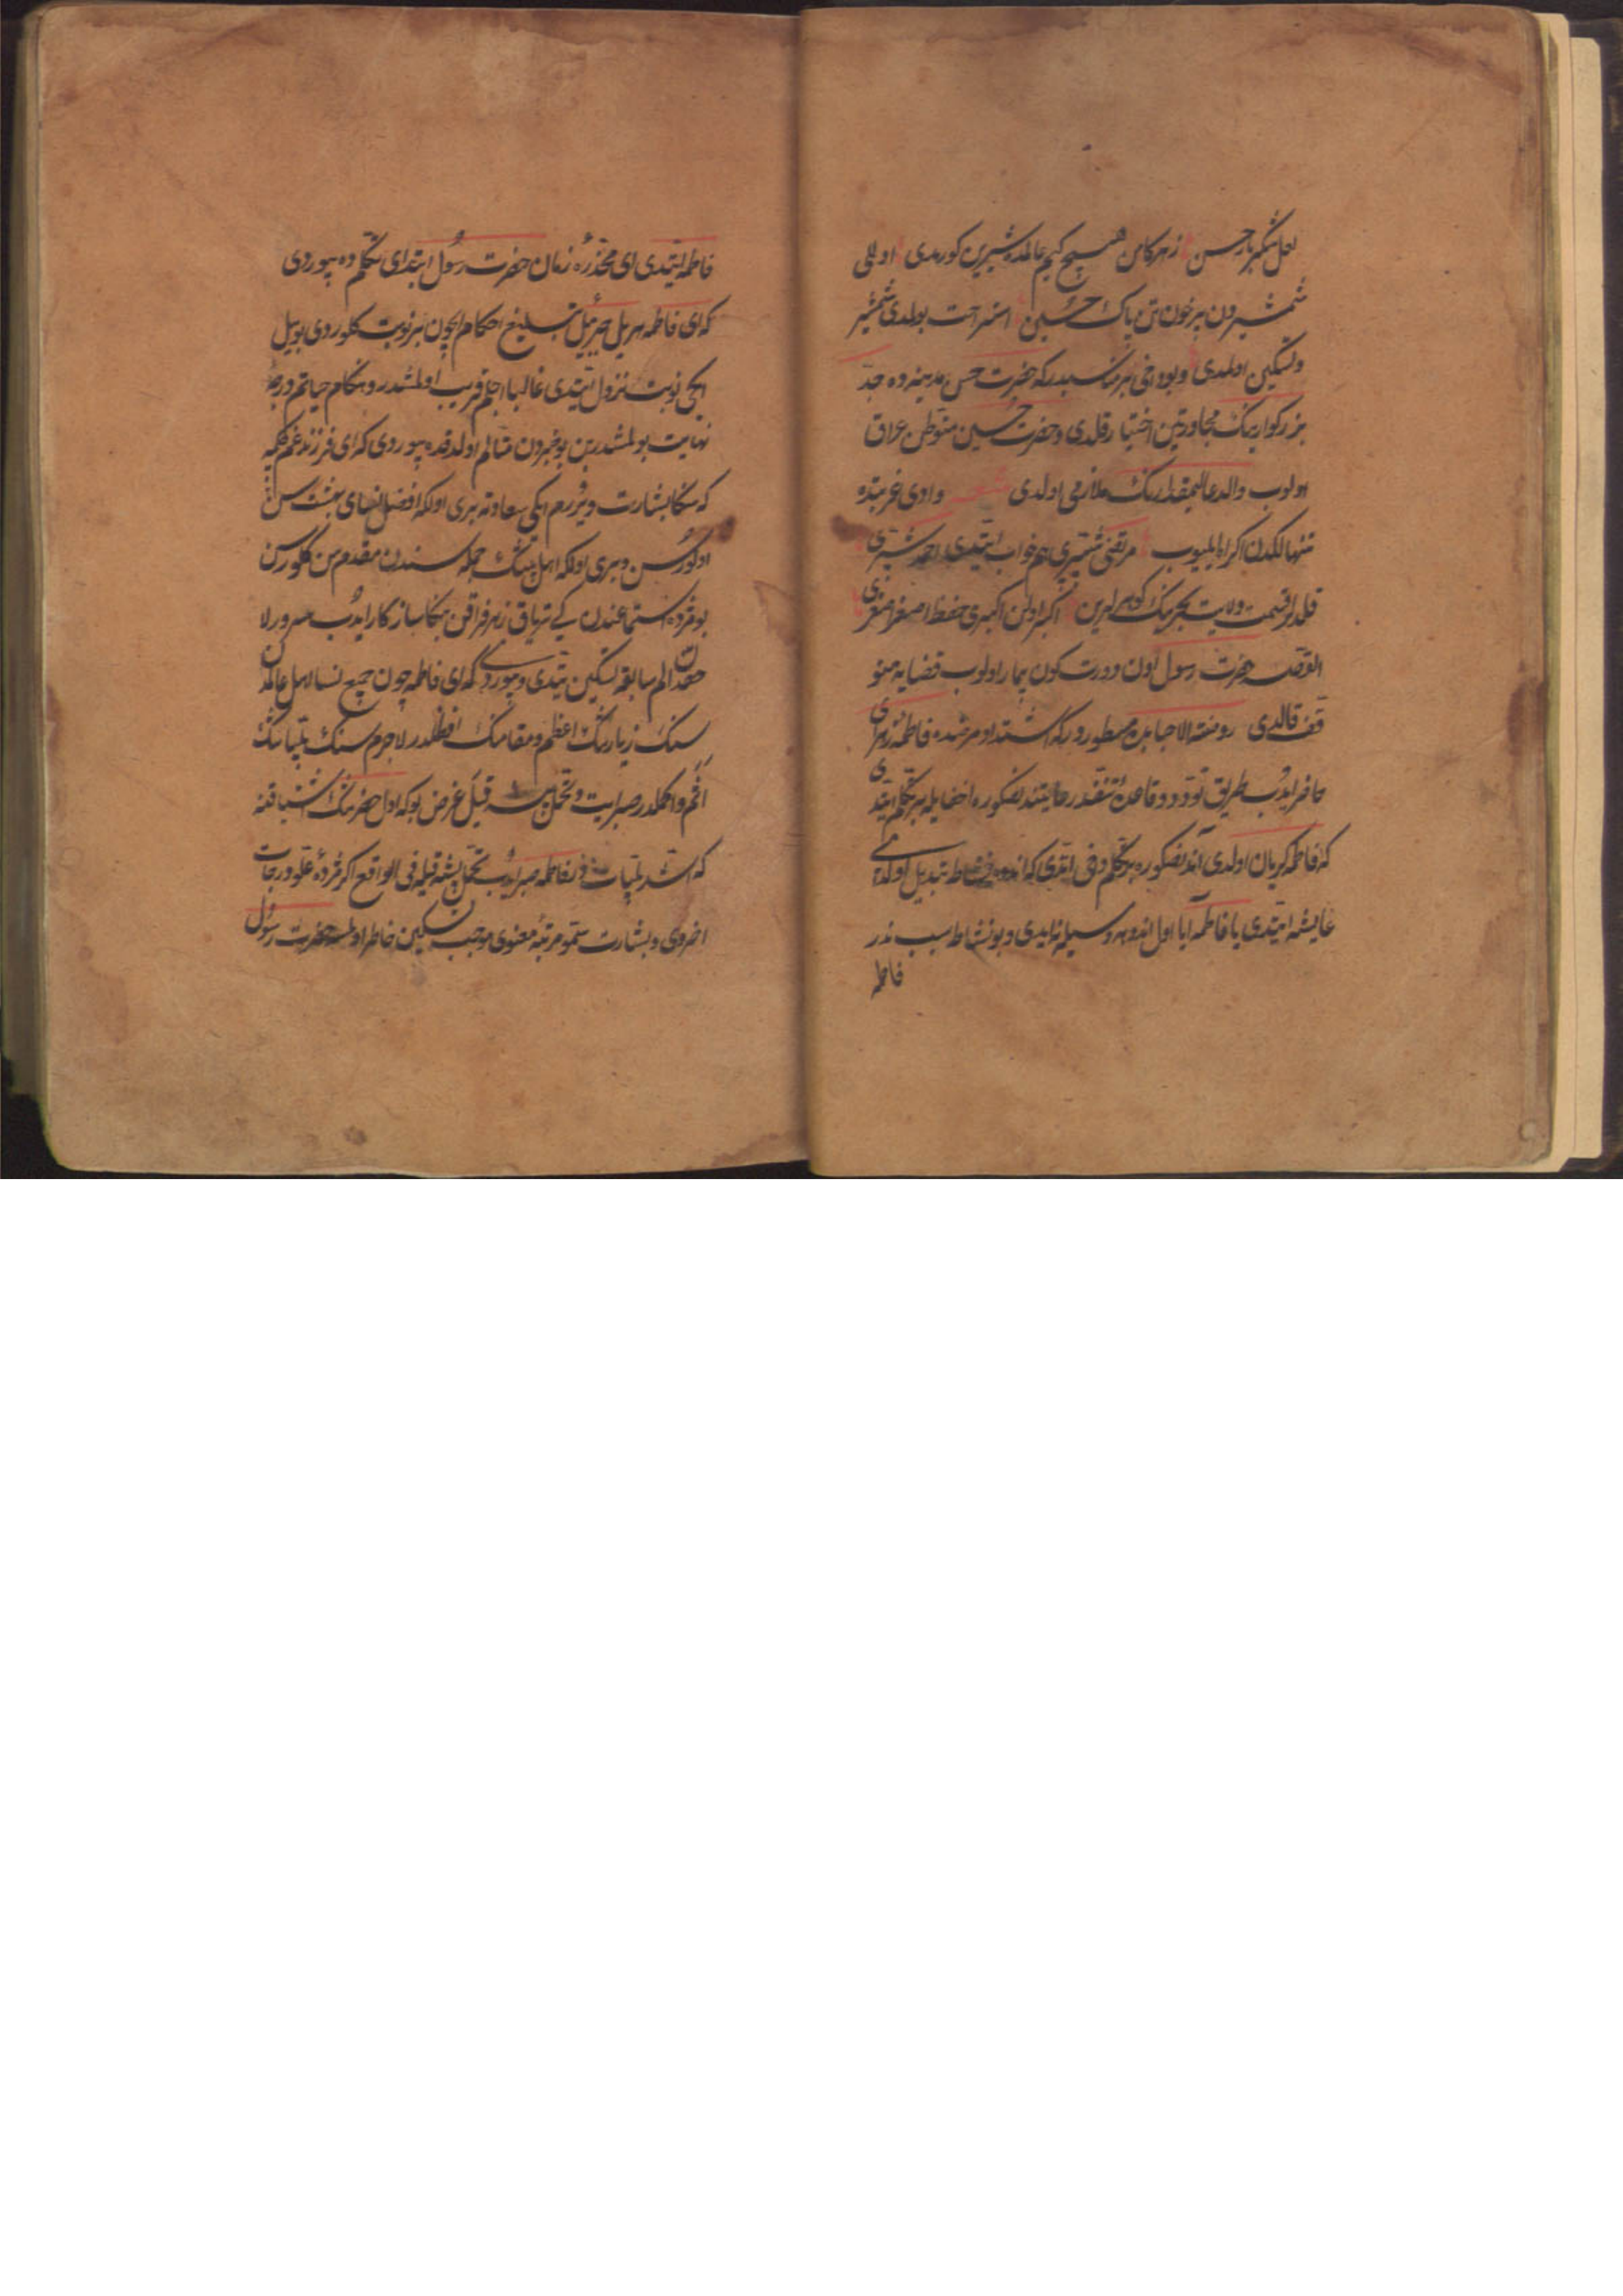 لعل شکر بار حسن زهر کامن هیچ کیم عالمده شیرین کورمدی اولی
شمشیردن پر خون تن پاک حسین استراحت بولدی شمشیر
و تسکین اولمدی و بو دخی بر مناسبدر که حضرت حسن مدینه ده جد
بزرکوارینک مجاورتین اختیار قلدی و حضرت حسین متوطن عراق
اولوب والد عالیمقدارینک ملازمی اولدی شعر وادی غربتده
تنهالکدن اکراه ایلیوب مرتضی شبیری هم خواب ایتدی احمد شبری
قلدلر قسمت ولایت بحرینک کوهرلرین اکبر اولن اکبری حفظ اصغر اصغری
القصه حضرت رسول اون دورت کون بیمار اولوب قضایه متو
قف قالدی روضة الاحبابده مسطوردر که اشتداد مرضده فاطمه زهرای
حاضر ایدوب طریق تودد و قاعده تفقد رعایتندنصکره اخفایله بر تکلم ایتدی
که فاطمه کریان اولدی اندنصکوره بر تکلم دخی اتدی که اندوهی نشاطه تبدیل اولدی
عایشه ایتدی یا فاطمه ایا اول اندوهه وسیله نه ایدی و بو نشاطه سبب ندر
فاطمه
فاطمه ایتدی ای مخدره زمان حضرت رسول ابتدای تکلم ده بیوردی
که ای فاطمه هر ییل جبرئیل تبلیغ احکام ایچون بر نوبت کلوردی بو ییل
ایکی نوبت نزول ایتدی غالبا اجلم قریب اولمشدر و هنکام حیاتم درجه
نهایت بولمشدر بن بو خبردن متألم اولدقده بیوردی که ای فرزند غم چکمه
که سکا بشارت ویررم ایکی سعادته بری اولکه افضل نسای بهشت سن
اولورسن و بری اولکه اهل بیتمک جمله سندن مقدم سن کلورسن
بو مژده استماعندن که تریاق زهر فراقن بکا سازکار ایدوب مسرور لا
حقدن الم سابقه تسکین یتدی و بیوردی که ای فاطمه چون جمیع نسا اهل عالمدن
سنک زیارتک اعظم و مقامک افضلدر لاجرم سنک بلیاتک
افخم و اکملدر صبر ایت و تحمل پیشه قیل غرض بو که اول حضرتک اشتیاقنه
که اشد بلیاتدر فاطمه صبر ایدوب تحمل پیشه قیله فی الواقع اکر مژده علو درجات
اخروی و بشارت سمو مرتبه معنوی موجب تسکین خاطر اولمسه حضرت رسول